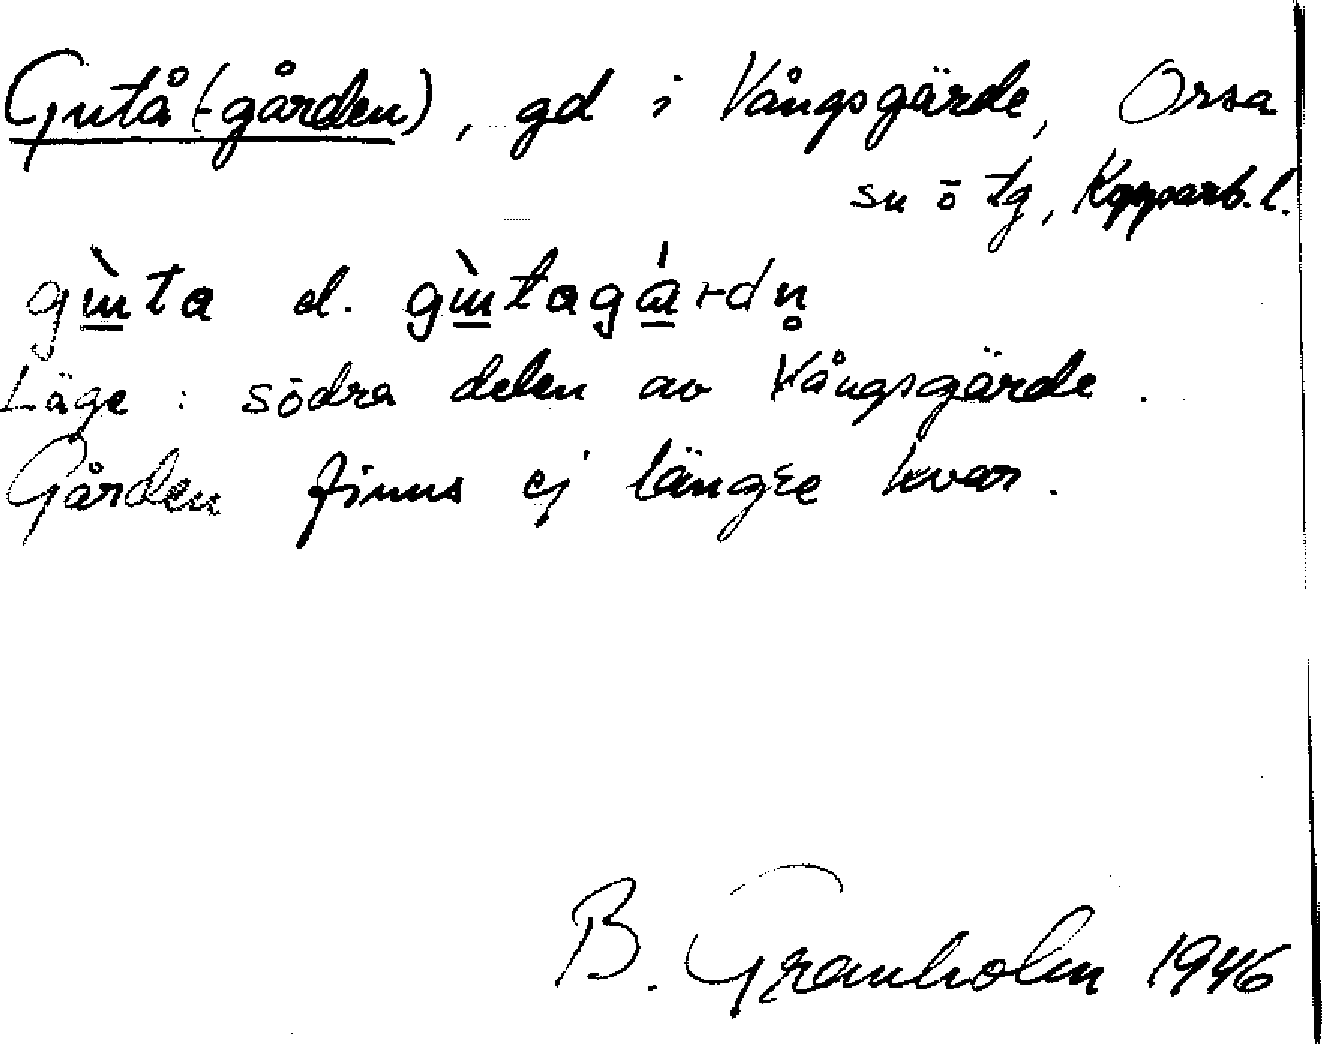 Gutå (-gården), gd i Vångsgärde, Orsa
sn ö tg, Kopparb. l.
gɯ̀ta el. gɯ̀tagárdn̥
Läge : södra delen av Vångsgärde .
Gården finns ej längre kvar .
B. Granholm 1946